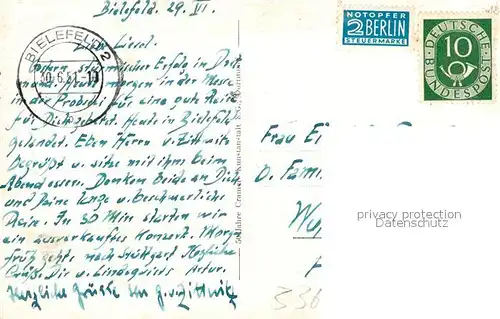 Bielefeld. 29. VI.
Liebe Liesel.
Gestern stürmischer Erfolg in Dort-
mund. Heute morgen in der Messe
in der Probstei für eine gute Reise
für Dich gebetet. Heute in Bielefeld
gelandet. Eben Herrn v. Zittwitz
begrüßt u. sitze mit ihm beim
Abendessen. Denken beide an Dich
und Deine lange u. beschwerliche
Reise. In 30 Min starten wir
ein ausverkauftes Konzert. Morgen
früh gehts nach Stuttgart Herzliche
Grüße Dir u. Lindequists Artur.
Herzliche Grüsse Ihr G. v. Zittwitz
BIELEFELD 2
30.6.51.-10
NOTOPFER
2 BERLIN
STEUERMARKE
DEUTSCHE
BUNDESPOST
10
Frau
D. Fam
privacy protection
VARIAGE.COM
336